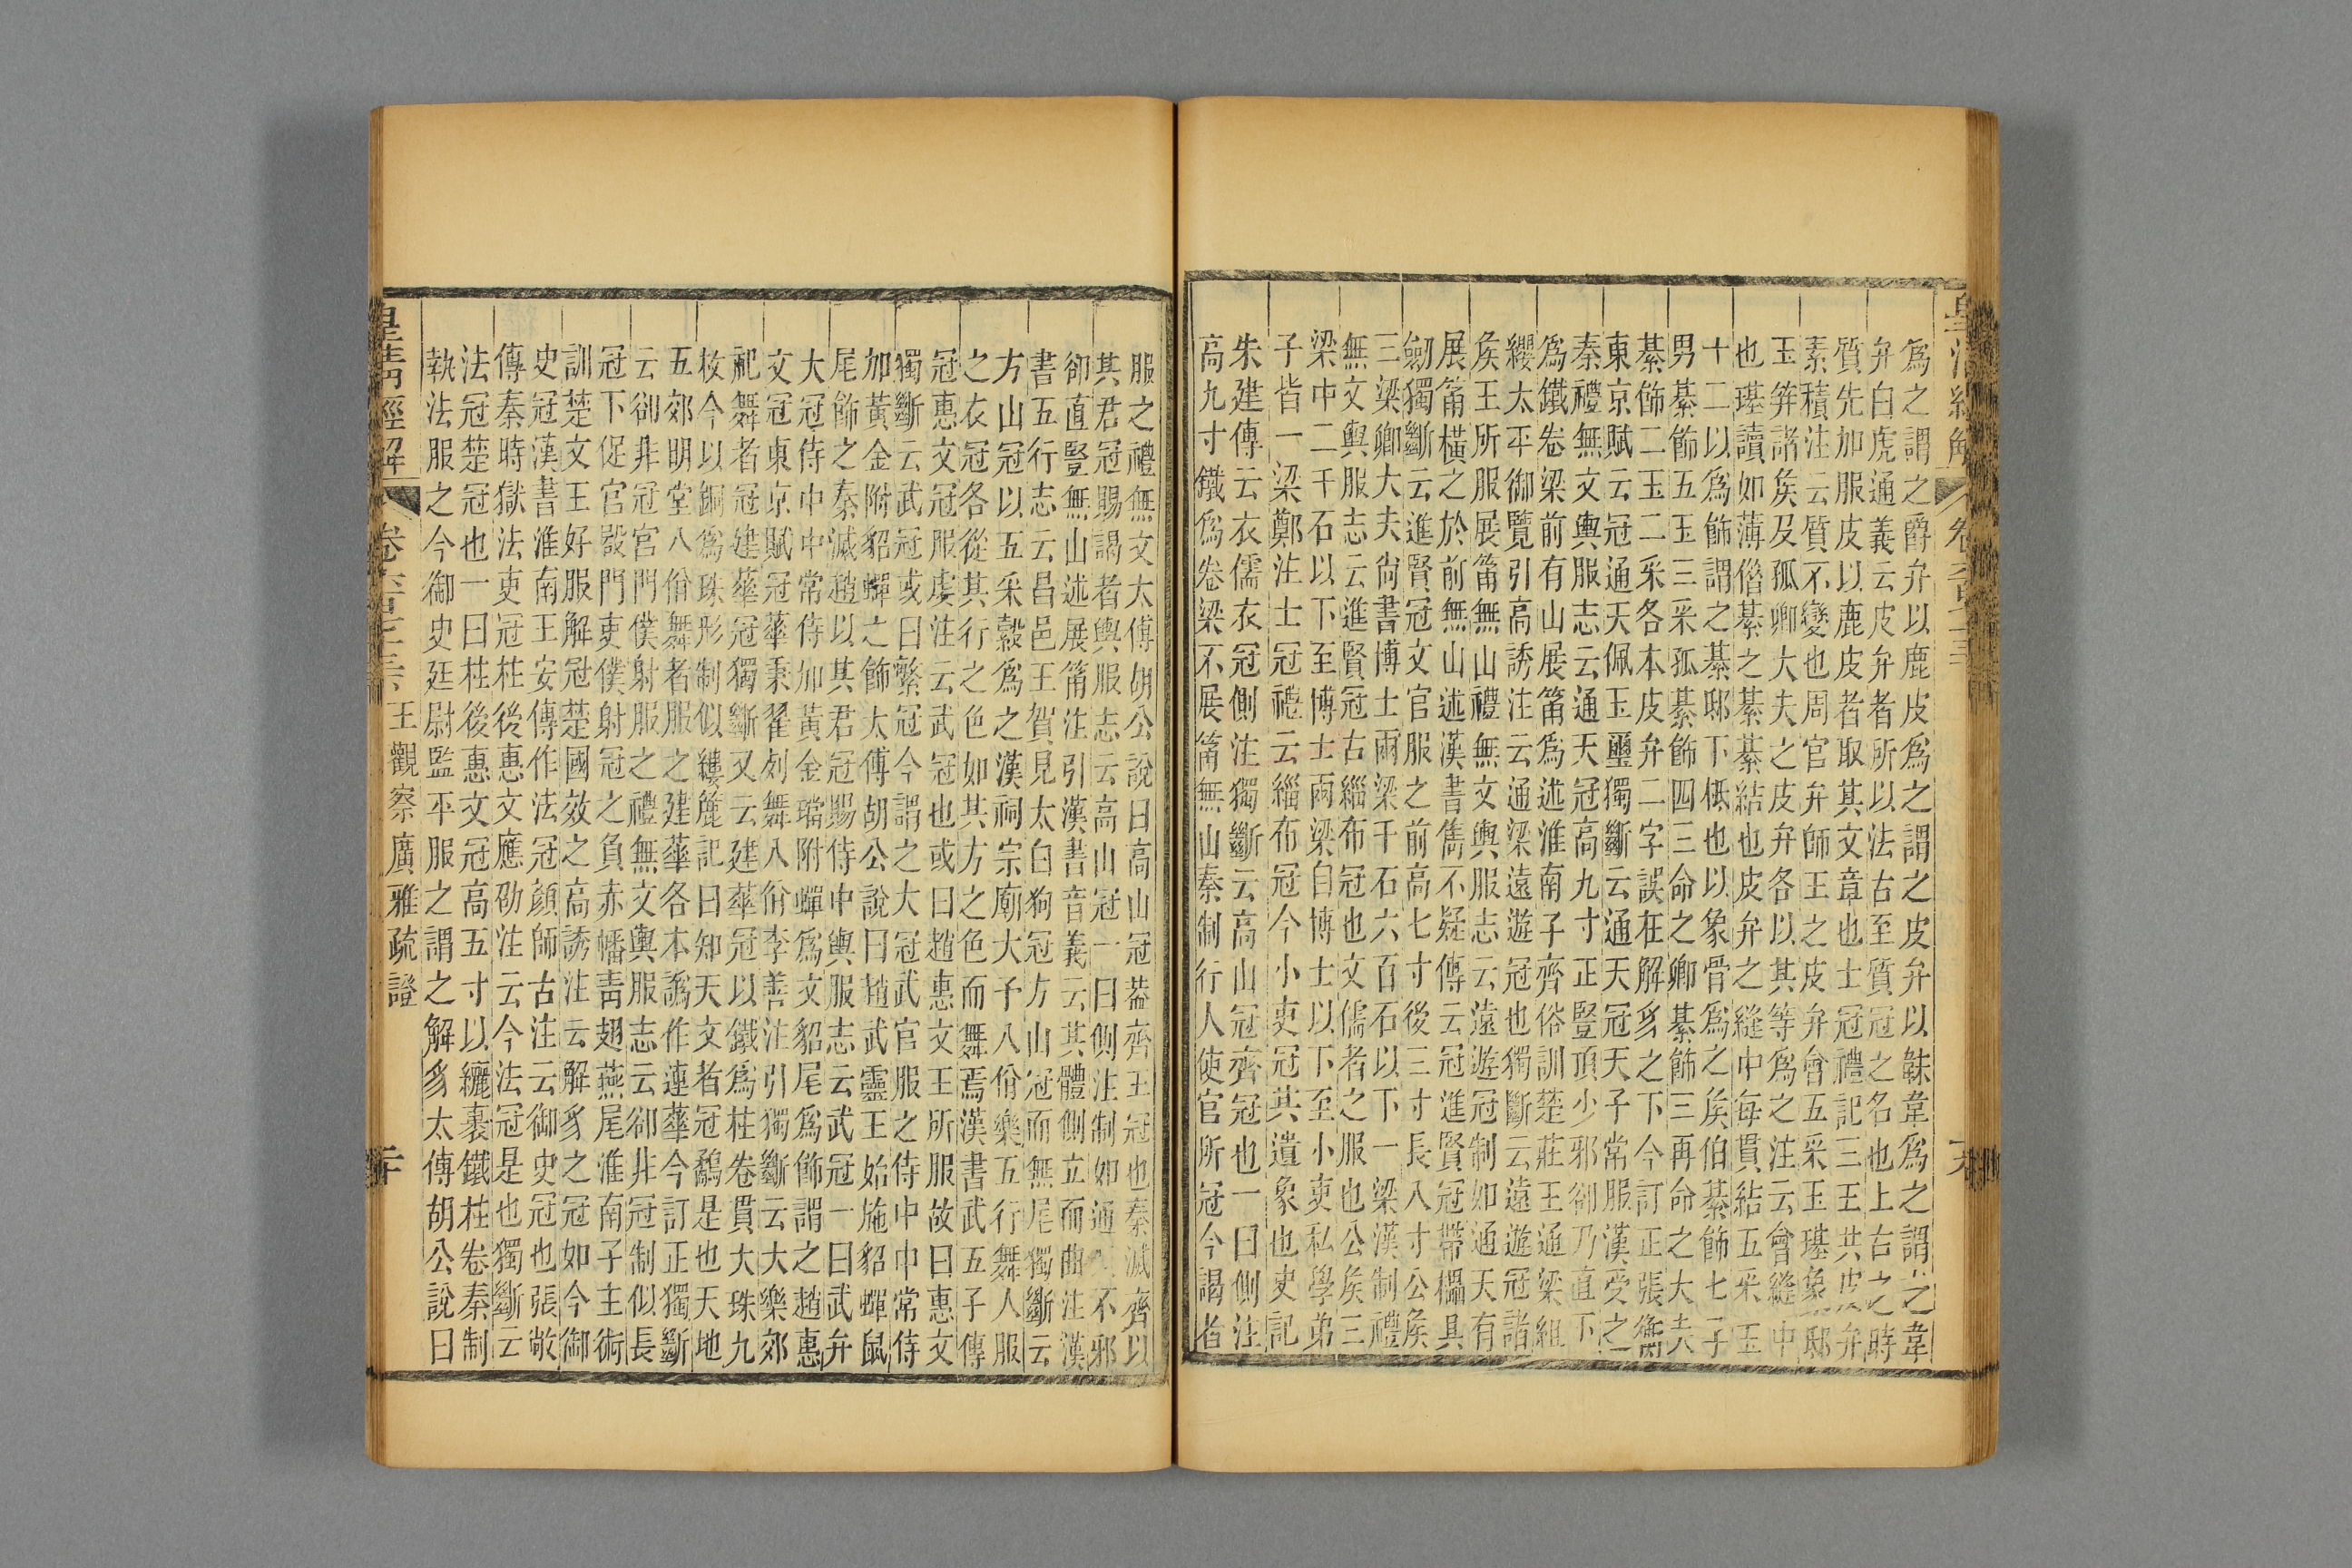 爲之謂之爵弁以鹿皮爲之謂之皮弁以韎韋爲之謂之韋
弁白虎通義云皮弁者所以法古至質冠之名也上古之時
質先加服皮以鹿皮者取其文章也士冠禮記三王共皮弁
素積注云質不變也周官弁師王之皮弁會五采玉璂象邸
玉笄諸矦及孤卿大夫之皮弁各以其等爲之注云會縫中
也璂讀如薄借綦之綦綦結也皮弁之縫中每貫結五采玉
十二以爲飾謂之綦邸下柢也以象骨爲之矦伯綦飾七子
男綦飾五玉三采孤綦飾四三命之卿綦飾三再命之大夫
綦飾二玉二采各本皮弁二字誤在解豸之下今訂正張衡
東京賦云冠通天佩玉璽獨斷云通天冠天子常服漢受之
秦禮無文輿服志云通天冠高九寸正豎頂少邪卻乃直下
爲鐵卷梁前有山展筩爲述淮南子齊俗訓楚莊王通梁組
纓太平御覽引高誘注云通梁遠遊冠也獨斷云遠遊冠諸
矦王所服展筩無山禮無文輿服志云遠遊冠制如通天有
展筩橫之於前無山述漢書雋不疑傳云冠進賢冠帶櫑具
劒獨斷云進賢冠文官服之前高七寸後三寸長八寸公矦
三梁卿大夫尙書博士兩梁千石六百石以下一梁漢制禮
無文輿服志云進賢冠古緇布冠也文儒者之服也公矦三
梁中二千石以下至博士兩梁自博士以下至小吏私學弟
子皆一梁鄭注士冠禮云緇布冠今小吏冠其遺象也史記
朱建傳云衣儒衣冠側注獨斷云高山冠齊冠也一曰側注
高九寸鐵爲卷梁不展筩無山秦制行人使官所冠今謁者
服之禮無文太傅胡公說曰高山冠葢齊王冠也秦滅齊以
其君冠賜謁者輿服志云高山冠一曰側注制如通天不邪
卻直豎無山述展筩注引漢書音義云其體側立而曲注漢
書五行志云昌邑王賀見大白狗冠方山冠而無尾獨斷云
方山冠以五采縠爲之漢祠宗廟大予八佾樂五行舞人服
之衣冠各從其行之色如其方之色而舞焉漢書武五子傳
冠惠文冠服虔注云武冠也或曰趙惠文王所服故曰惠文
獨斷云武冠或曰繁冠今謂之大冠武官服之侍中中常侍
加黃金附貂蟬之飾太傅胡公說曰趙武靈王始施貂蟬鼠
尾飾之秦滅趙以其君冠賜侍中輿服志云武冠一曰武弁
大冠侍中中常侍加黃金璫附蟬爲文貂尾爲飾謂之趙惠
文冠東京賦冠華秉翟列舞八佾李善注引獨斷云大樂郊
祀舞者冠建華冠獨斷又云建華冠以鐵爲柱卷貫大珠九
枚今以銅爲珠形制似縷簏記曰知天文者冠鷸是也天地
五郊明堂八佾舞者服之建華各本譌作連華今訂正獨斷
云卻非冠宮門僕射服之禮無文輿服志云卻非冠制似長
冠下促宮殿門吏僕射冠之負赤幡靑翅燕尾淮南子主術
訓楚文王好服解冠楚國效之高誘注云解豸之冠如今御
史冠漢書淮南王安傳作法冠顏師古注云御史冠也張敞
傳秦時獄法吏冠柱後惠文應劭注云今法冠是也獨斷云
法冠楚冠也一曰柱後惠文冠高五寸以纚裹鐵柱卷秦制
執法服之今御史廷尉監平服之謂之解豸太傅胡公說曰
王觀察廣雅疏證